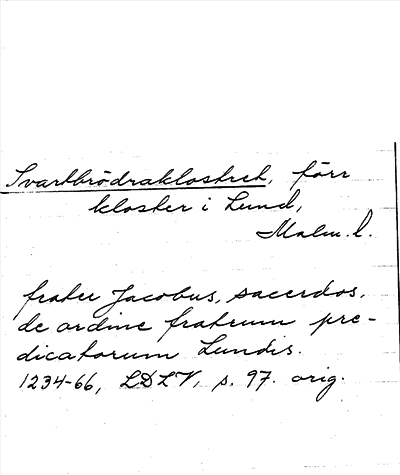 Svartbrödraklostret, förr
kloster i Lund,
Malm. l.
frater Jacobus, sacerdos,
de ordine fratrum pre-
dicatorum Lundis.
1234-66, LDLV, s. 97. orig.